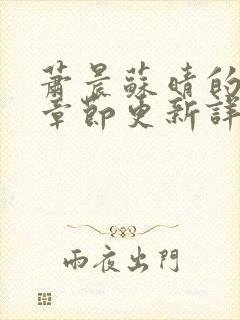 蕭晨蘇晴的
章節更新詳
雨夜出門